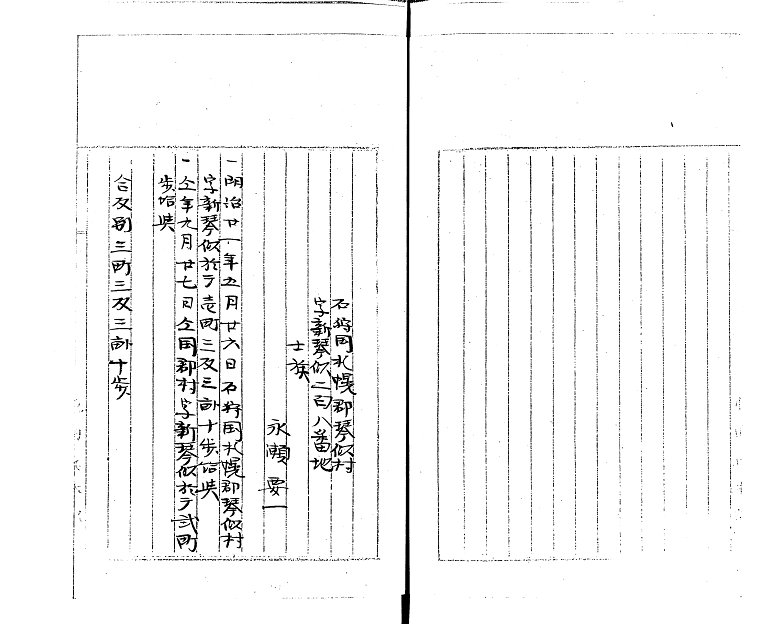 石狩国札幌郡琴似村
字新琴似二百八番地
士族
永瀬要一
一明治廿一年五月廿六日石狩国札幌郡琴似村
字新琴似於テ壱町三反三畝十歩給與
一仝年九月廿七日仝国郡村字新琴似於テ弐町
歩給與
合反別三町三反三畝十歩